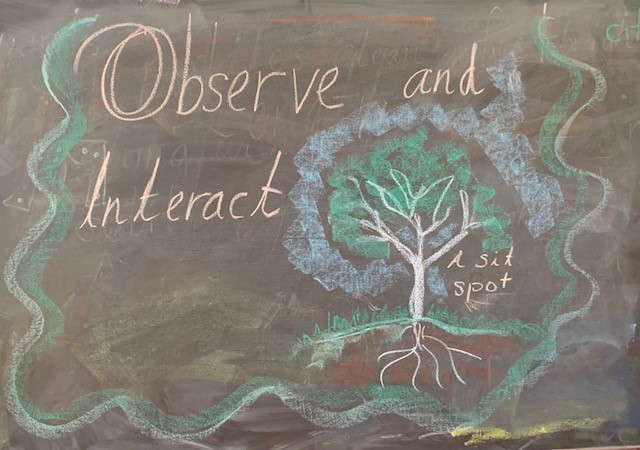 Observe and
Interact
A sit
spot